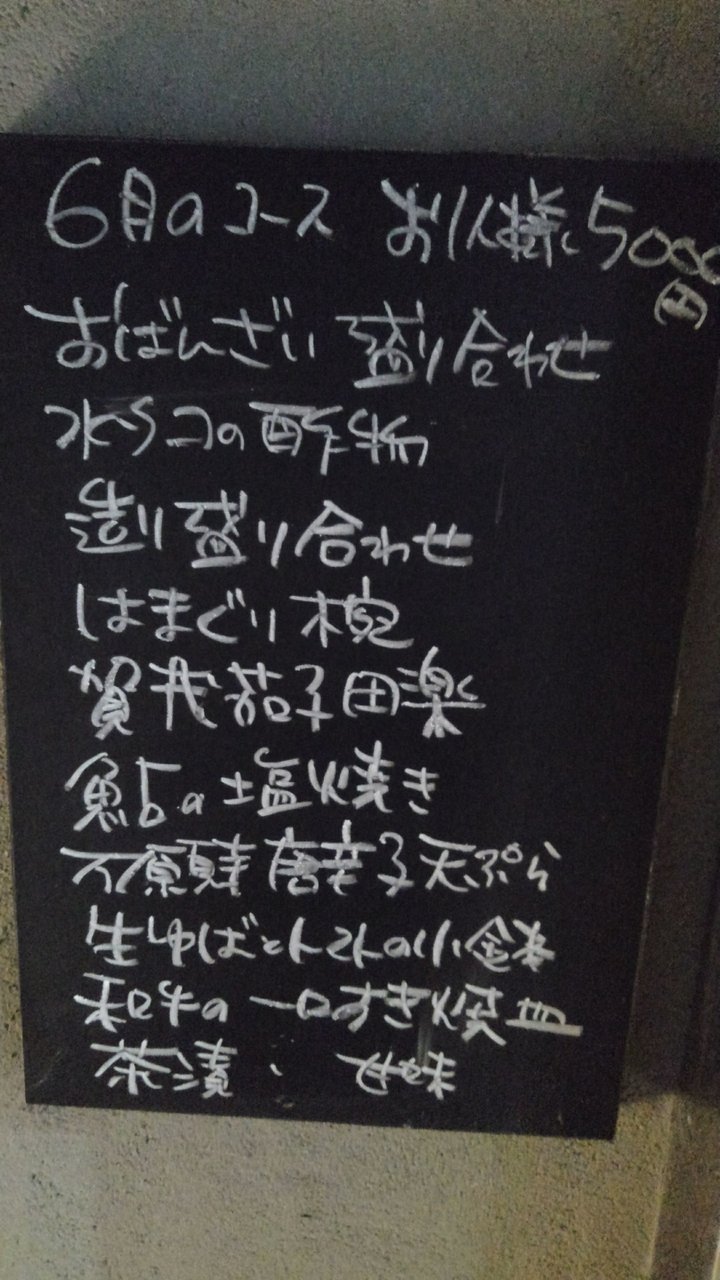 6月のコース お1人様 5000円
おばんざい 盛り合わせ
水タコの酢物
造り盛り合わせ
はまぐり椀
賀茂茄子田楽
鮎の塩焼き
万願寺唐辛子天ぷら
生ゆばとトマトの小鉢
和牛の一口すき焼皿
茶漬・甘味